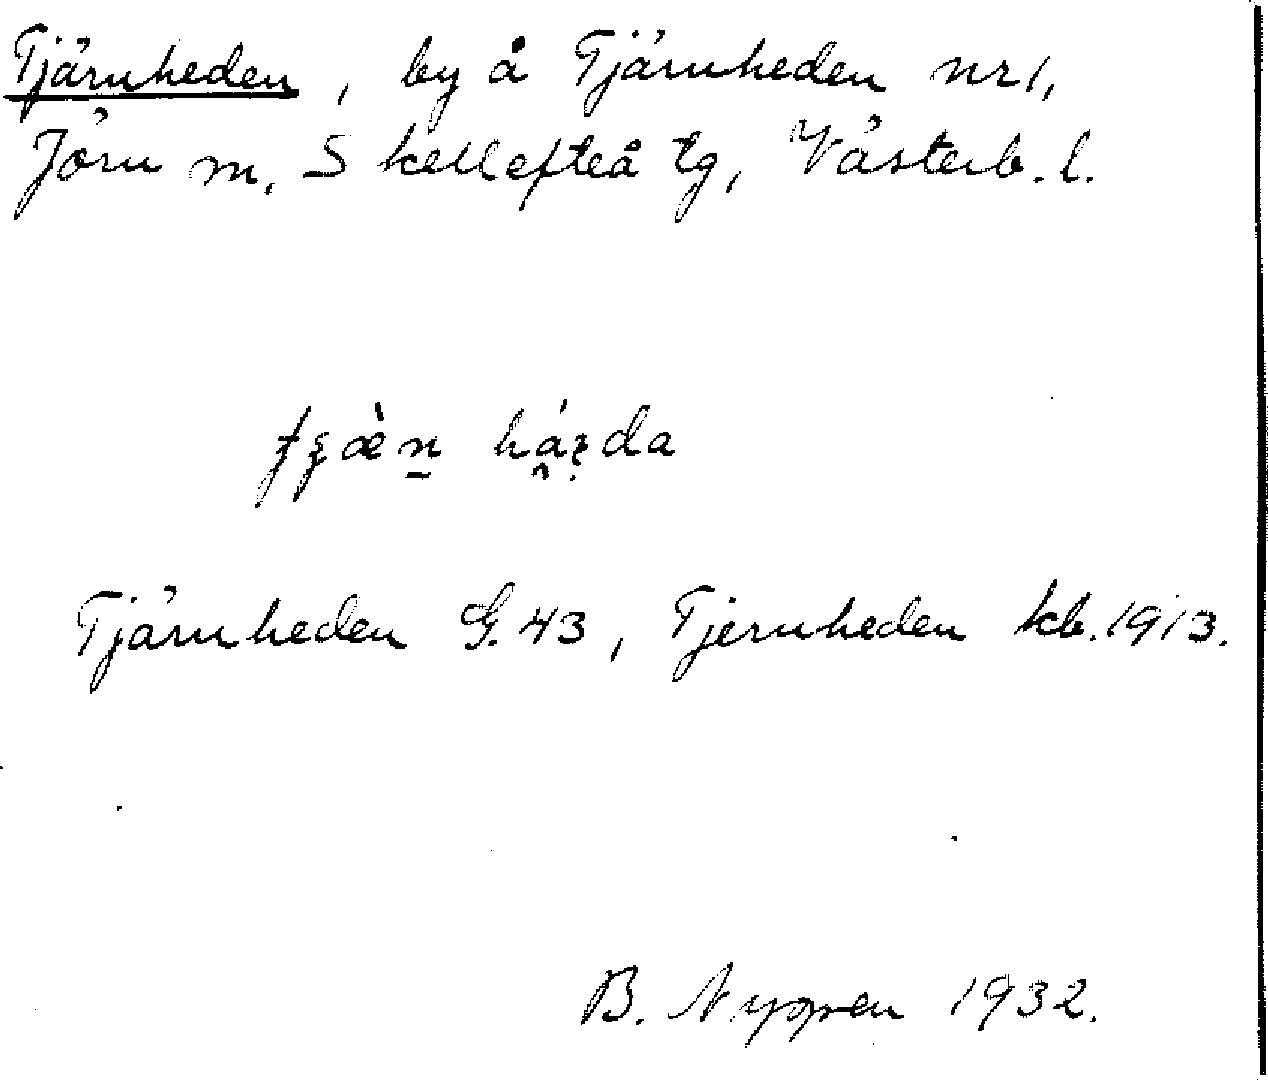 Tjärnheden, by å Tjärnheden nr 1,
Jörn sn. Skellefteå tg, Västerb. l.
há̭ṛda
Tjärnheden G. 43, Tjernheden kb. 1913.
B. Nygren 1932.